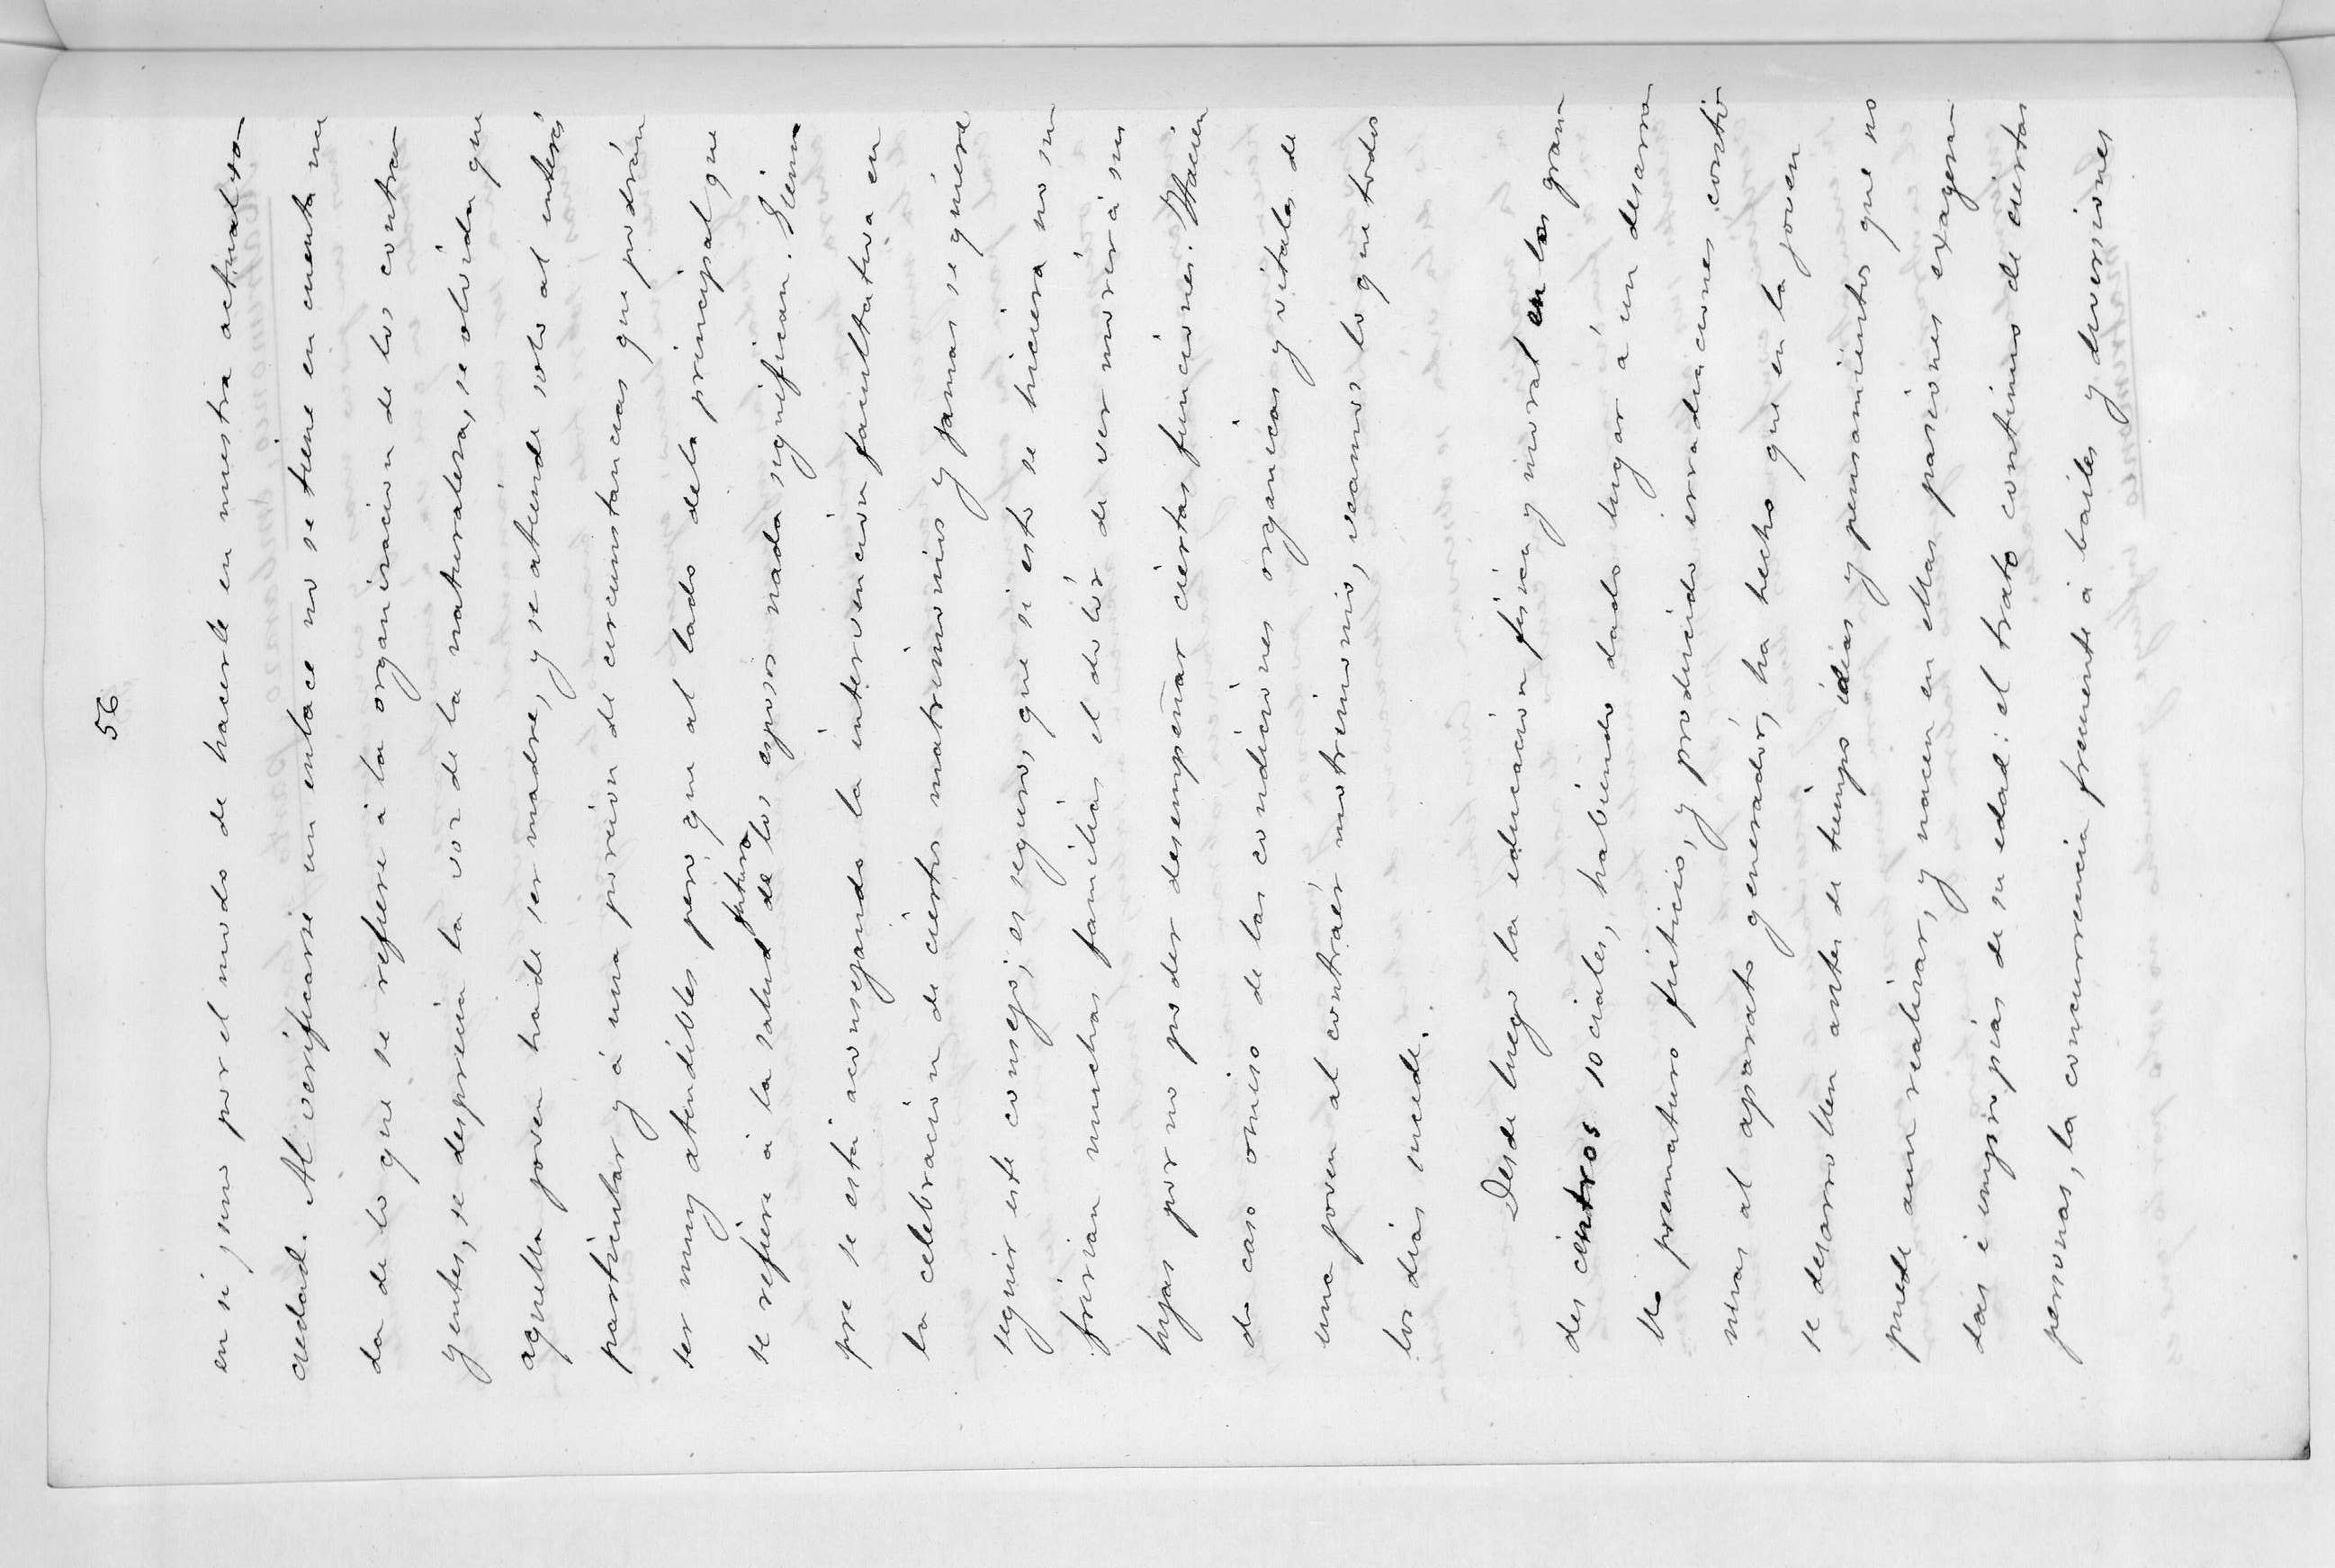 56
en si, sino por el modo de hacerle en nuestra actual so-
ciedad. Al verificarse un enlace no se tiene en cuenta na
da de lo que se refiere á la organizacion de los contra-
yentes, se desprecia la voz de la naturaleza, se olvida que
aquella joven ha de ser madre, y se atiende solo al interés
particular y á una porcion de circunstancias que podrán
ser muy atendibles pero que al lado de la principal, que
futura
se refiere á la salud de los esposos nada significan. Siem-
pre se está aconsejando la intervencion facultativa en
la celebracion de ciertos matrimonios y jamas se quiere
seguir este consejo; es seguro, que si esto se hiciera no su
fririan muchas familias el dolór de ver morir á sus
hijas por no poder desempeñar ciertas funciones. Hacien
do caso omiso de las condiciones organicas y vitales de
una joven al contraér matrimonio, veamos lo que todos
los dias sucede.
Desde luego la educacion fisica y moral en los gran-
des centros sociales, habiendo dado lugar á un desarro-
llo prematuro ficticio, y producido irradiaciones conti-
nuas al aparato generadór, ha hecho que en la joven
se desarrollen antes de tiempo idéas y pensamientos que no
puede aun realizar, y nacen en ellas pasiones exagera-
das é impropias de su edad: el trato continuo de ciertas
personas, la concurrencia frecuente á bailes y diversiones